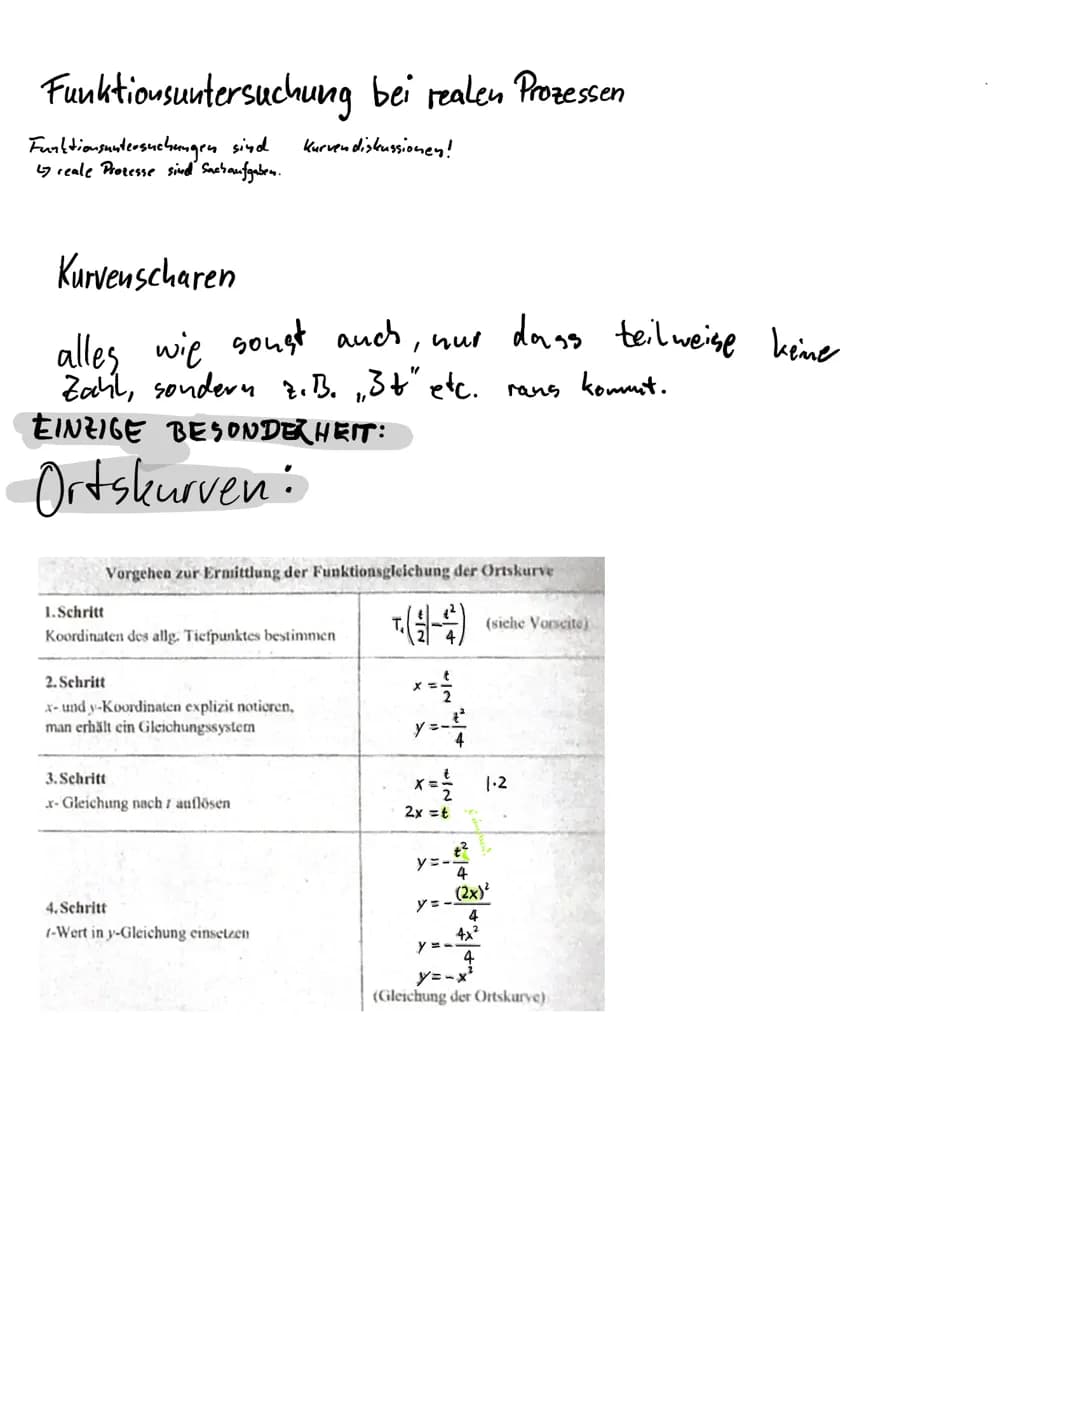 Funktionsuntersuchung bei realen Prozessen
Funktionsuntersuchungen sind Kurvendiskussionen!
↳ reale Prozesse sind Sachaufgaben.
Kurvenscharen
alles wie sonst auch, nur dass teilweise keine
Zahl, sondern z.B. „3t" etc. raus kommt.
EINZIGE BESONDERHEIT:
Ortskurven:
Vorgehen zur Ermittlung der Funktionsgleichung der Ortskurve
1. Schritt
Koordinaten des allg. Tiefpunktes bestimmen
T₁(t/2|-t²/4) (siehe Vorseite)
2. Schritt
x- und y-Koordinaten explizit notieren,
man erhält ein Gleichungssystem
x = t/2
y = -t²/4
3. Schritt
x- Gleichung nach t auflösen
x = t/2 |·2
2x = t
4. Schritt
t-Wert in y-Gleichung einsetzen
y = -t²/4
y = -(2x)²/4
y = -4x²/4
y = -x²
(Gleichung der Ortskurve)